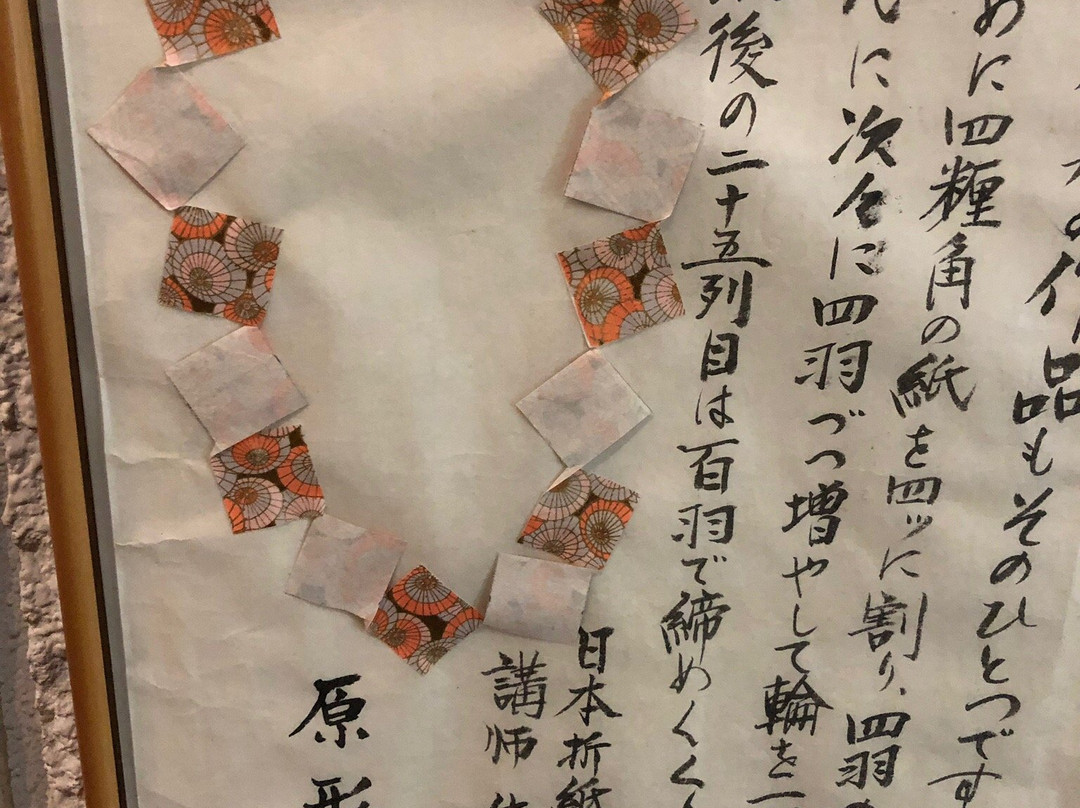 の作品もそのひとつです
めに四糎角の紙を四ッに割り、四羽
に次々に四羽づつ増やして輪を一
後の二十五列目は百羽で締めくくり
日本折紙
講師
原形